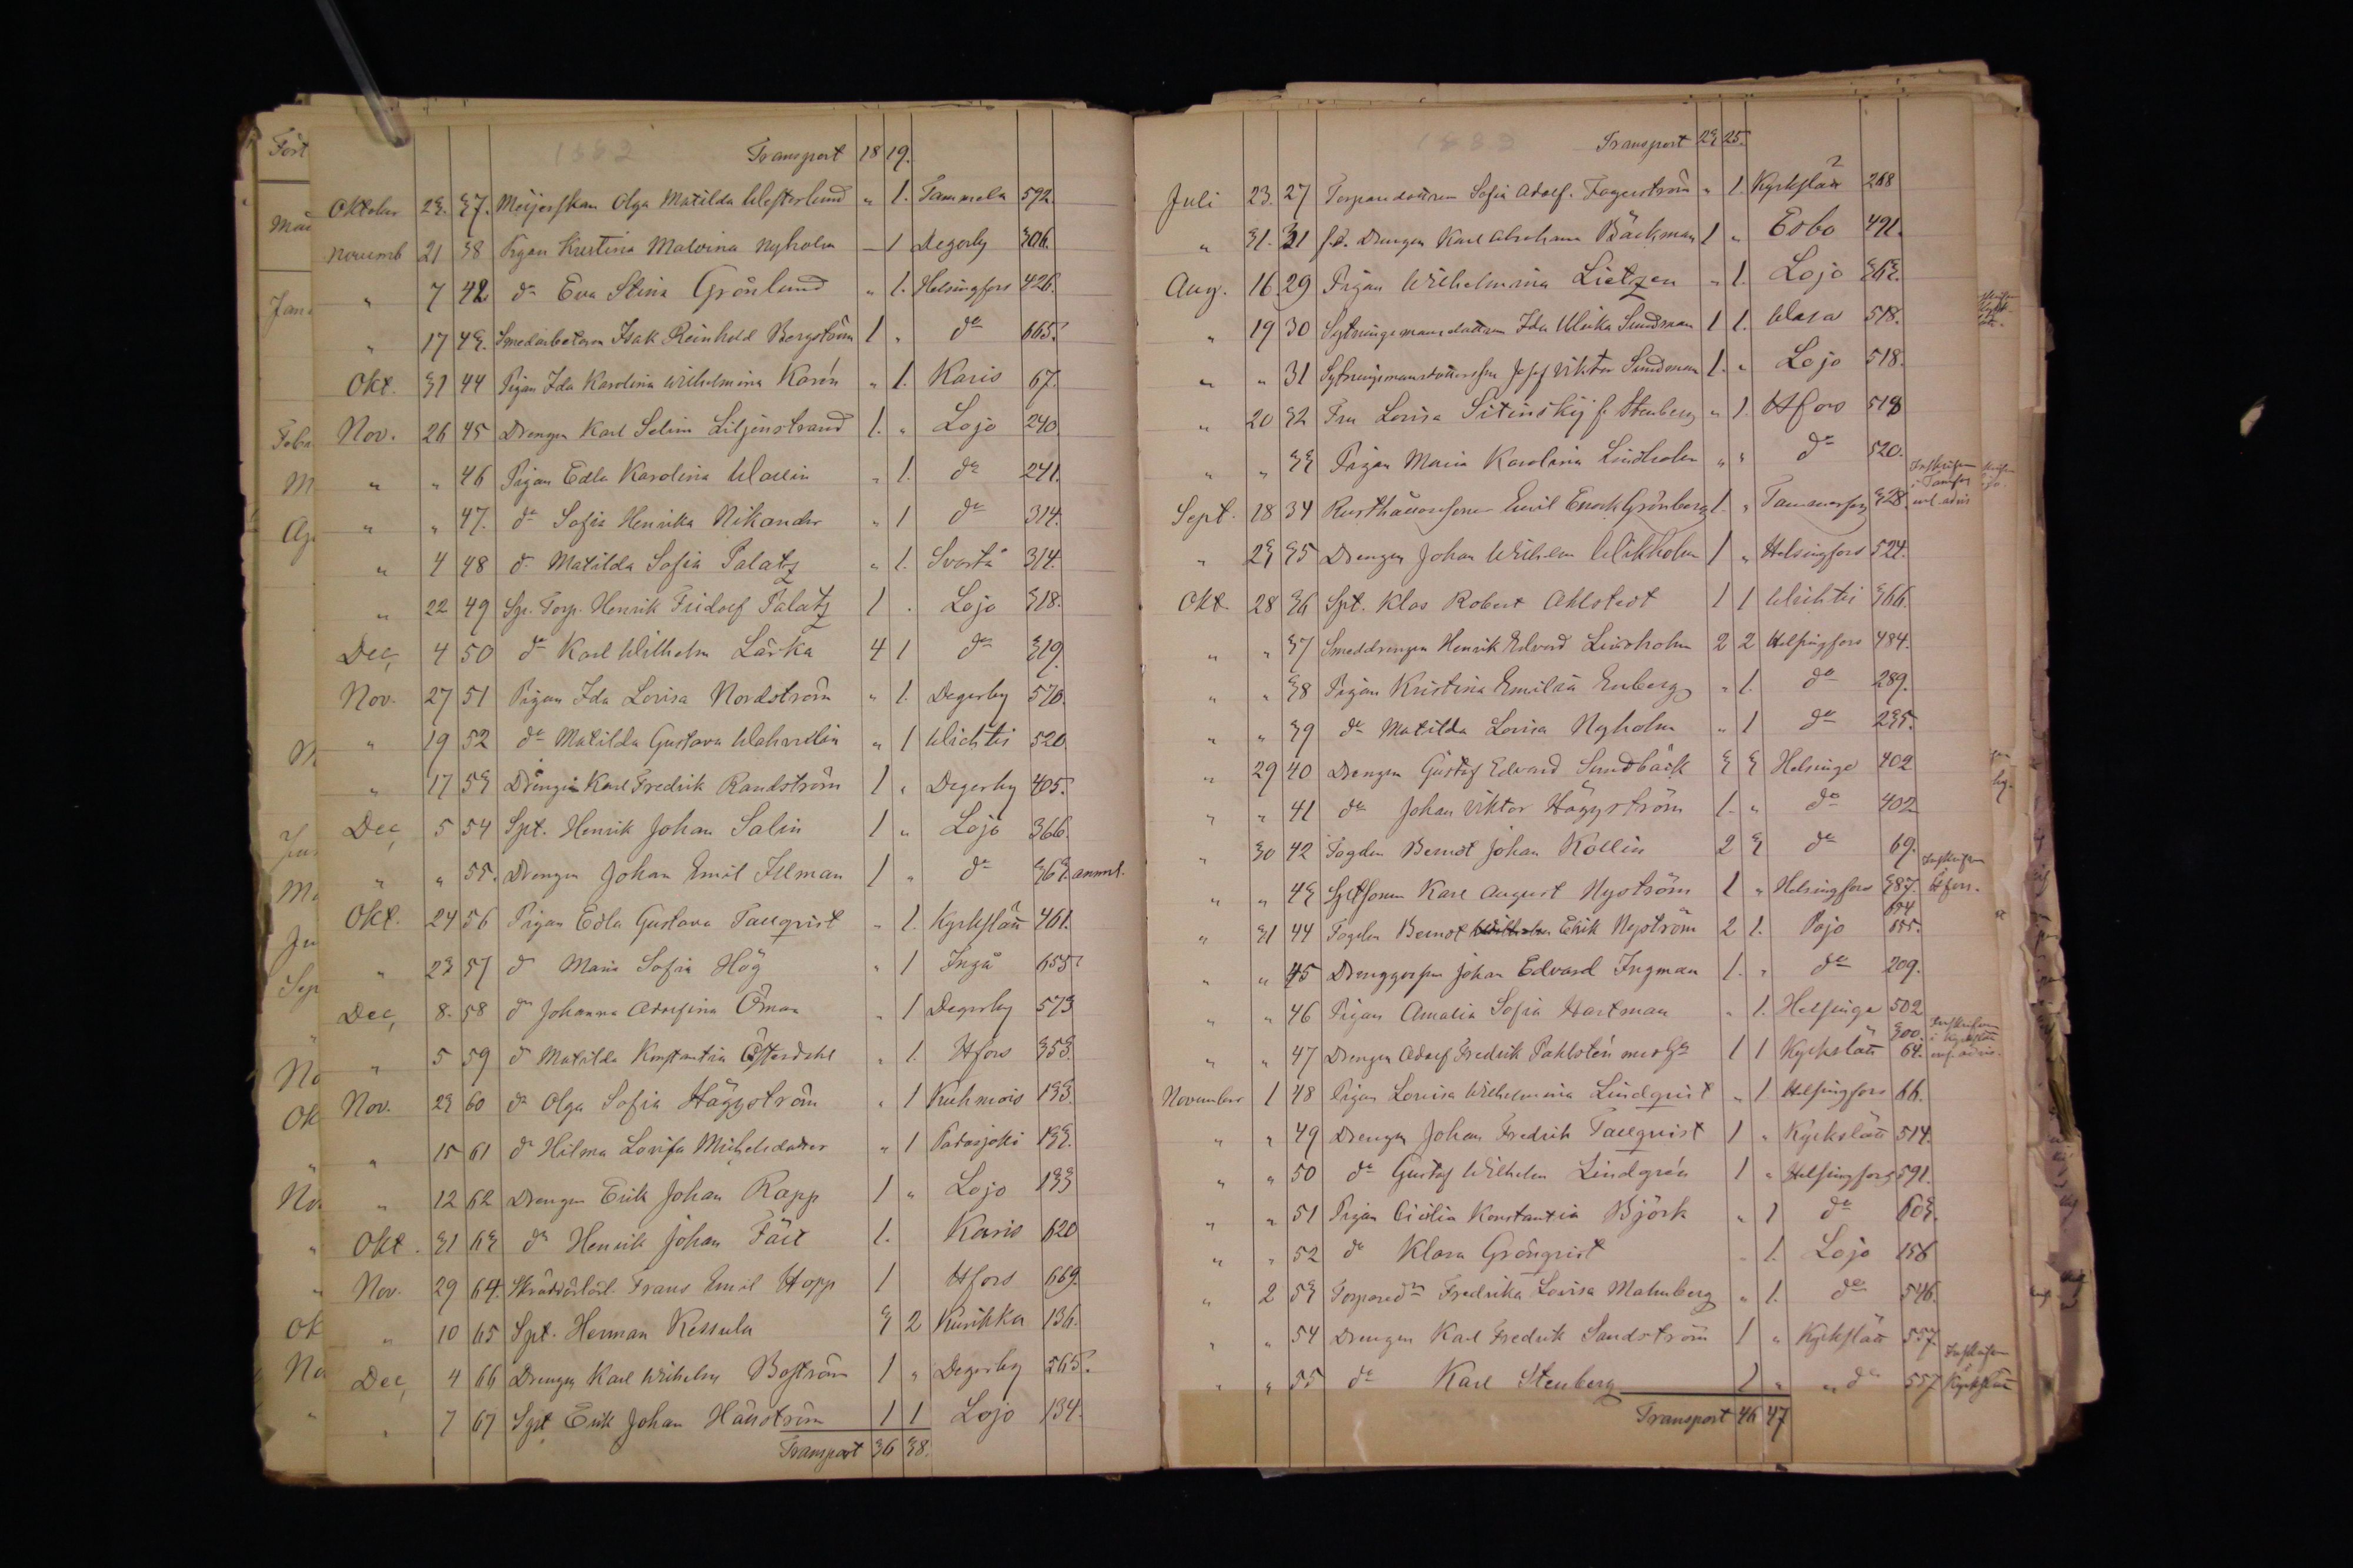 1882
Transport 18 19.
Oktober 23. 37. Meijerskan Olga Matilda Westerlund " 1. Tammela 592.
Novemb 21 38 Pigan Kristina Malvina Nyholm — 1 Degerby 306.
" 7 42. do Eva Stina Grönlund " 1. Helsingfors 426.
" 17 43. Smedarbetaren Isak Reinhold Bergström 1 " do 665.
Okt. 31 44 Pigan Ida Karolina Wilhelmina Karén " 1. Karis 67.
Nov. 26 45 Drengen Karl Selim Liljenstrand 1. " Lojo 240
" " 46 Pigan Edla Karolina Wallin " 1. do 241.
" " 47. do Sofia Henrika Nikander " 1 do 314.
" 4 48 do Matilda Sofia Palatz " 1. Svartå 314.
" 22 49 Sp. Torp. Henrik Fridolf Palatz 1 . Lojo 318.
Dec, 4 50 do Karl Wilhelm Lärka 4 1 do 319.
Nov. 27 51 Pigan Ida Lovisa Nordström " 1. Degerby 570.
" 19 52 do Matilda Gustava " 1 Wichtis 520
" 17 53 Drengen Karl Fredrik Randström 1 " Degerby 405.
Dec, 5 54 Spt. Henrik Johan Salin 1 " Lojo 366.
" " 55. Drengen Johan Emil Illman 1 " do 363. annul.
Okt. 24 56 Pigan Edla Gustava Tallqvist " 1. Kyrkslätt 461.
" 23 57 do Maria Sofia Hög " 1 Ingå 655.
Dec, 8. 58 do Johanna Adolfina Öman " 1 Degerby 573
" 5 59 do Matilda Konstantia Österdahl " 1. Hfors 353.
Nov. 23 60 do Olga Sofia Häggström " 1 Kuhmois 133.
" 15 61 do Hilma Lovisa Michelsdotter " 1 Padasjoki 133.
" 12 62 Drengen Erik Johan Rapp 1 " Lojo 133
Okt. 31 63 do Henrik Johan Fält 1. Karis 620
Nov. 29 64. Frans Emil Hopp 1 Hfors 669.
" 10 65 Spt. Herman Kessula 3 2 Kurikka 136.
Dec, 4 66 Drengen Karl Wilhelm Boström 1 " Degerby 565.
" 7 67 Spt Erik Johan Hällström 1 1 Lojo 134.
Transport 36 38.
1882
Transport 23 25.
Juli 23. 27 Torparedottren Sofia Adolf. Fagerström " 1. Kyrkslätt 268
" 31. 31 f.d. Drengen Karl Abraham Bäckman 1 " Esbo 491.
Aug. 16. 29 Pigan Wilhelmina Lietzen " 1. Lojo 363.
" 19 30 Sytningsmansdottren Ida Ulrika Sundman 1 1. Wasa 518.
" " 31 Josef Viktor Sundman 1. " Lojo 518.
" 20 32 Fru Lovisa Sitinskij f. Stenberg " 1. Hfors 518
" " 33 Pigan Maria Karolina Lindholm " " do 520.
Sept. 18 34 Rusthållaresonen Emil Enock Grönberg 1. " Tammerfors 328. Inskrifven i Tamfors enl. advis
" 23 35 Drengen Johan Wilhelm Wikholm 1 " Helsingfors 524.
Okt. 28 36 Spt. Klas Robert Ahlstedt 1 1 Wichtis 366.
" " 37 Smeddrengen Henrik Edvard Lindholm 2 2 Helsingfors 484.
" " 38 Pigan Kristina Emilia Enberg " 1. do 289.
" " 39 do Matilda Lovisa Nyholm " 1 do 235.
" 29 40 Drengen Gustaf Edvard Sundbäck 3 3 Helsinge 402
" " 41 do Johan Viktor Häggström 1. " do 402
" 30 42 Fogden Berndt Johan Kollin 2 3 do 69.
" " 43 Karl August Nyström 1 " Helsingfors 387. Inskrifven Hfors.
" 31 44 Fogden Berndt Erik Nyström 2 1. Pojo 654 655.
" " 45 Johan Edvard Ingman 1. " do 209.
" " 46 Pigan Amalia Sofia Hartman " 1. Helsinge 502
" " 47 Drengen Adolf Fredrik Pahlstén 1 1 Kyrkslätt 300. 64. Inskrifven i Kyrkslätt enl. advis.
November 1 48 Pigan Lovisa Wilhelmina Lindqvist " 1 Helsingfors 66.
" " 49 Drengen Johan Fredrik Tallqvist 1 " Kyrkslätt 514.
" " 50 do Gustaf Wilhelm Lindgrén 1 " Helsingfors 591.
" " 51 Pigan Cecilia Konstantia Björk " 1 do 603.
" " 52 do Klara Grönqvist " 1. Lojo 156
" 2 53 Fredrika Lovisa Malmberg " 1. do 546.
" " 54 Drengen Karl Fredrik Sandström 1 " Kyrkslätt 557.
" " 55 do Karl Stenberg 1 " " do 557 Inskrifven Kyrkslätt
Transport 46 47